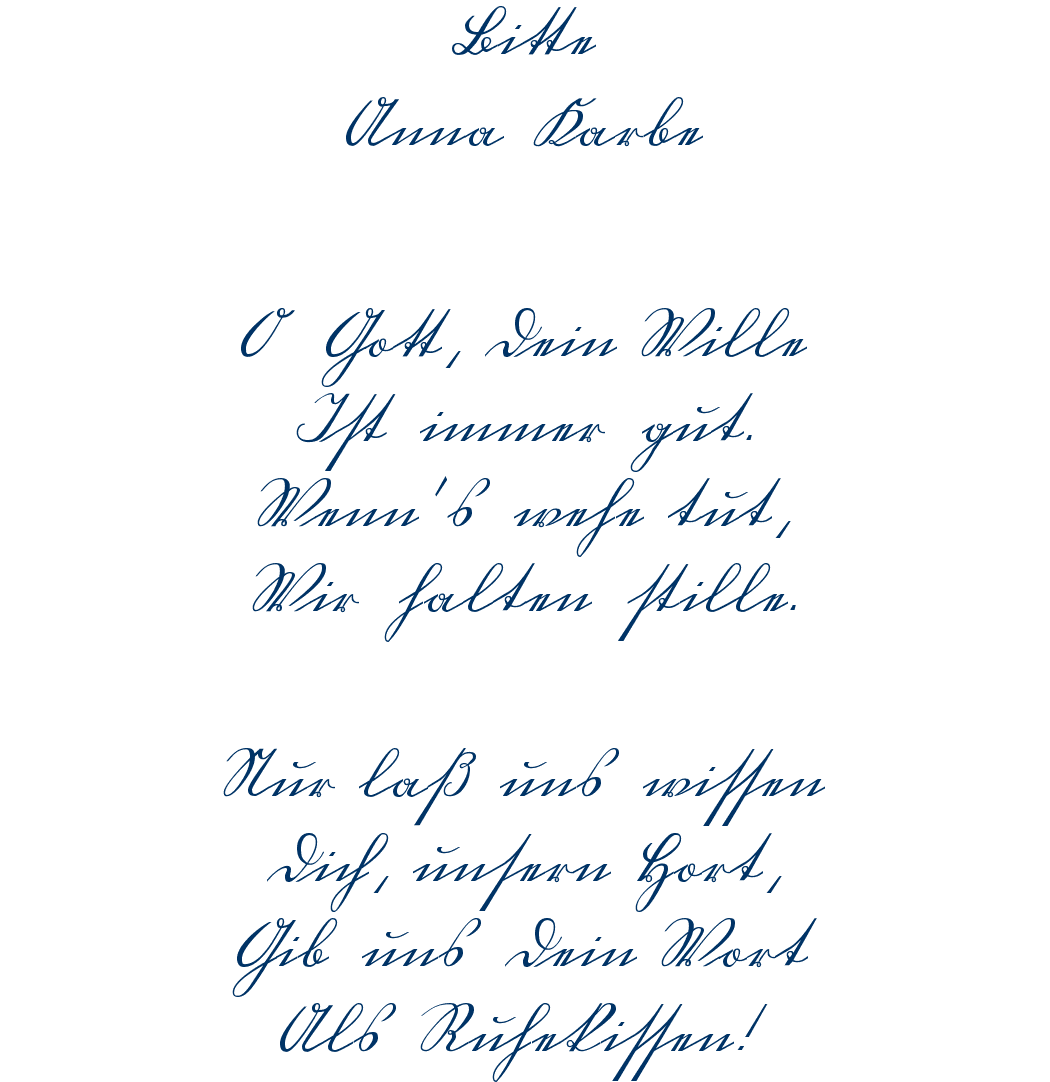 Bitte
Anna Karbe
O Gott, Dein Wille
Ist immer gut.
Wenn's wehe tut,
Wir halten stille.
Nur laß uns wissen
Dich, unsern Hort,
Gib uns Dein Wort
Als Ruhekissen!